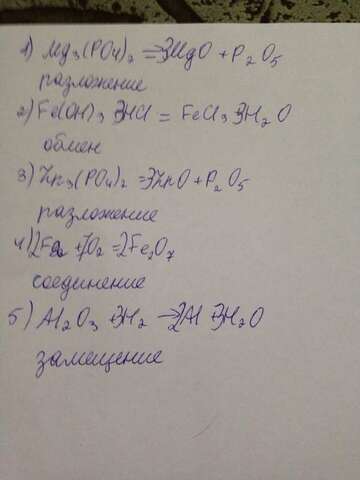 1) Mg₃(PO₄)₂ = 3MgO + P₂O₅
разложение
2) Fe(OH)₃ 3HCl = FeCl₃ 3H₂O
обмен
3) Zn₃(PO₄)₂ = 3ZnO + P₂O₅
разложение
4) 2Fe + 7O₂ = 2Fe₂O₇
соединение
5) Al₂O₃ + 3H₂ → 2Al + 3H₂O
замещение